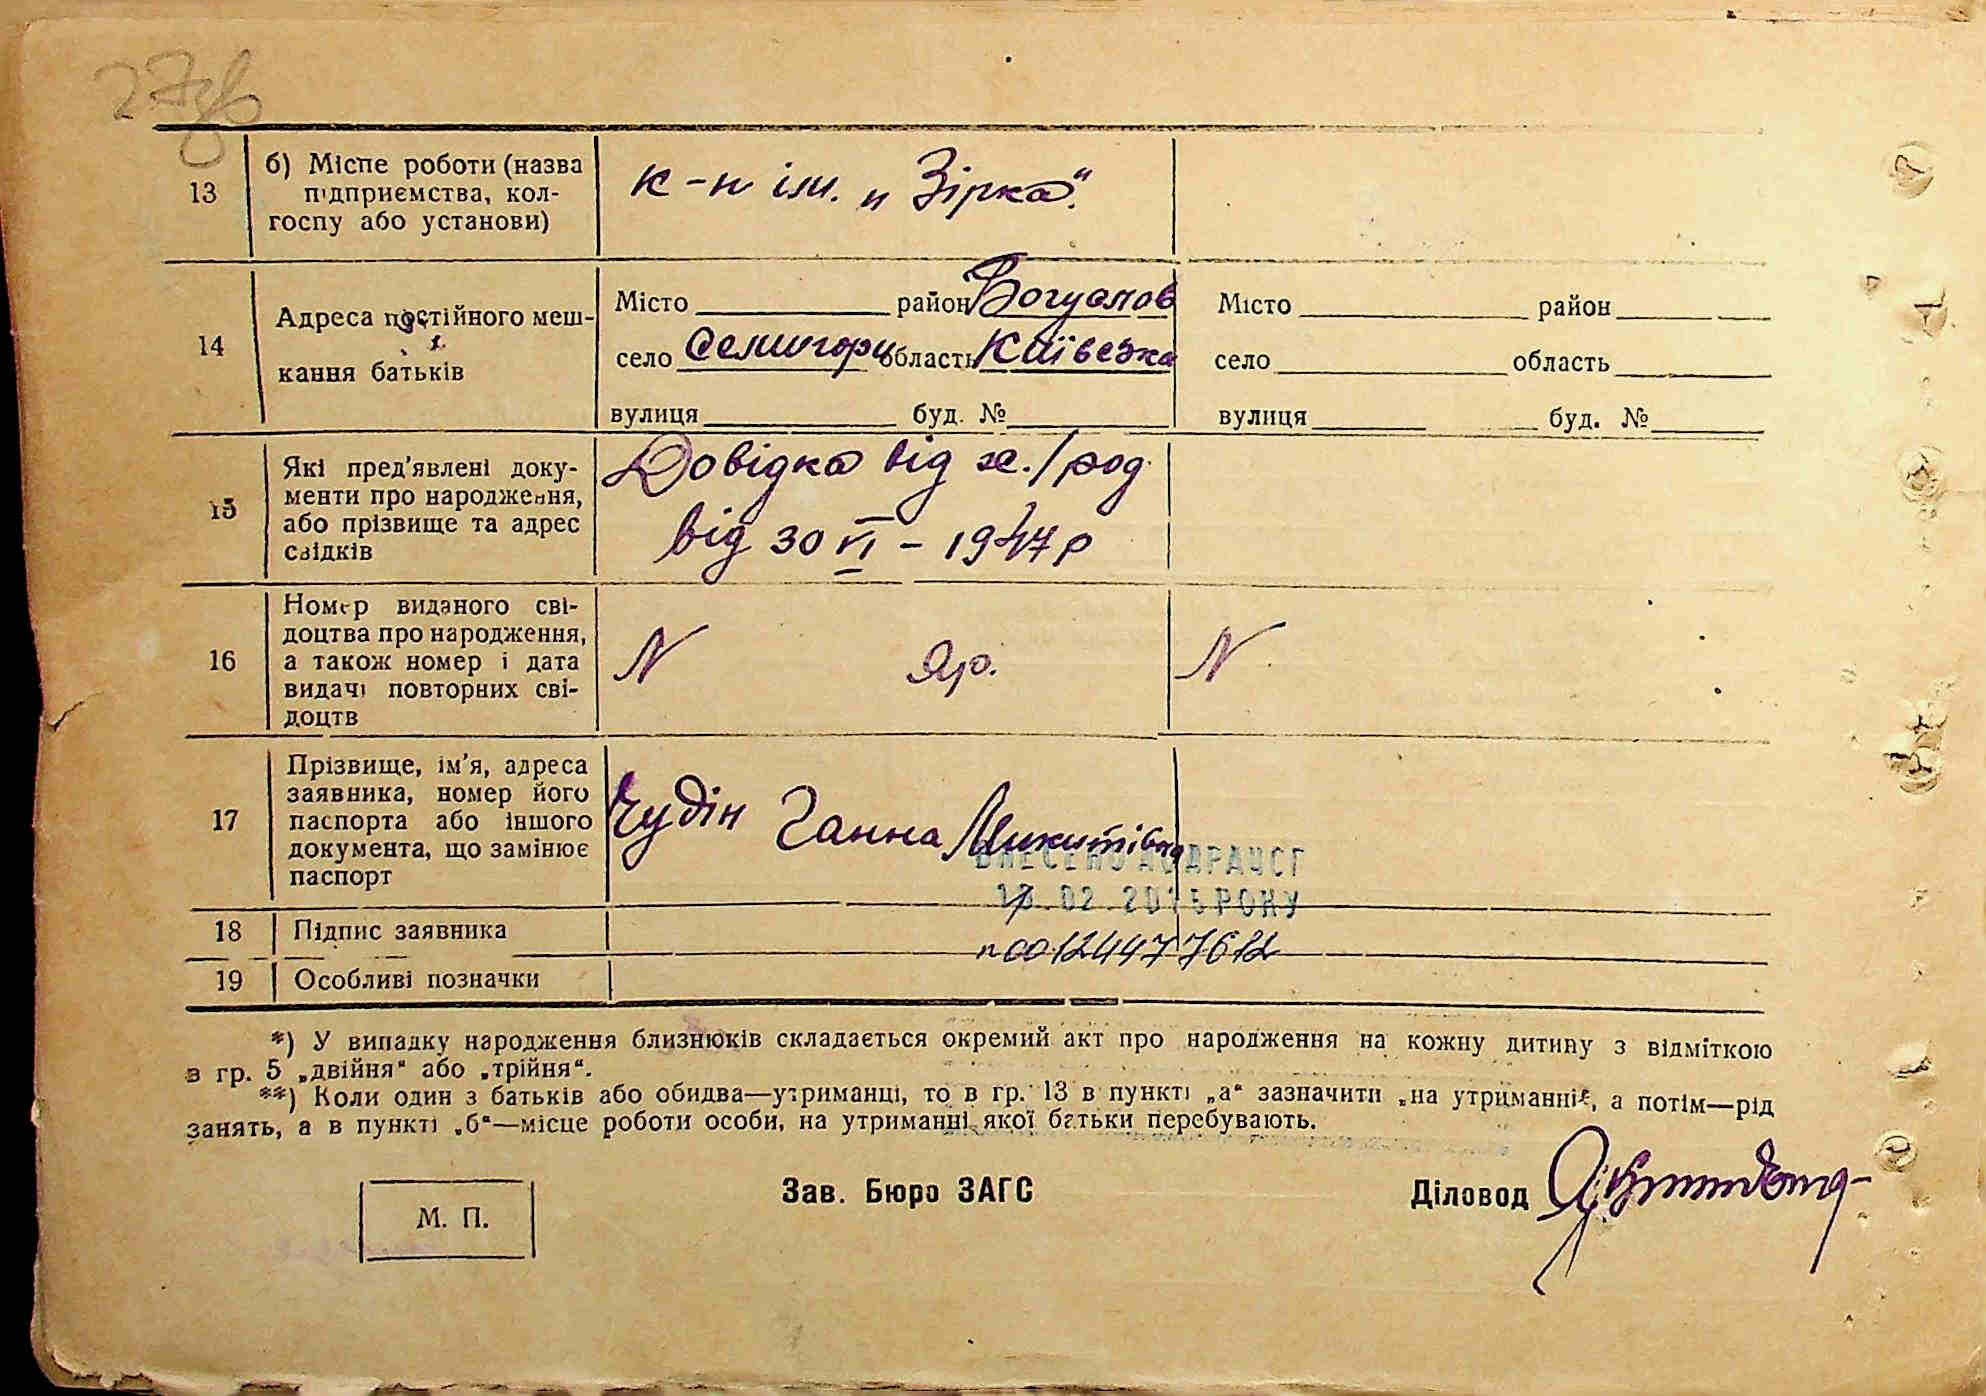 27зв
13
б) Місце роботи (назва
підприємства, кол-
госпу або установи)
к-п ім. „Зірка“.
14
Адреса постійного меш-
кання батьків
Місто район Богуслав
село Семигори область Київська
вулиця буд. №
Місто район
село область
вулиця буд. №
15
Які пред'явлені доку-
менти про народження,
або прізвище та адрес
свідків
Довідка від
від 30 VI – 1947 р
16
Номер виданого сві-
доцтва про народження,
а також номер і дата
видачі повторних сві-
доцтв
N Яр. N
17
Прізвище, ім'я, адреса
заявника, номер його
паспорта або іншого
документа, що замінює
паспорт
Чудін Ганна Микитівна
ВНЕСЕНО ДО ДРАЦСГ
.02.2015 РОКУ
18
Підпис заявника
19
Особливі позначки
*) У випадку народження близнюків складається окремий акт про народження на кожну дитину з відміткою
в гр. 5 „двійня“ або „трійня“.
**) Коли один з батьків або обидва—утриманці, то в гр. 13 в пункті „а“ зазначити „на утриманні“, а потім—рід
занять, а в пункті „б“—місце роботи особи, на утриманні якої батьки перебувають.
М. П.
Зав. Бюро ЗАГС
Діловод